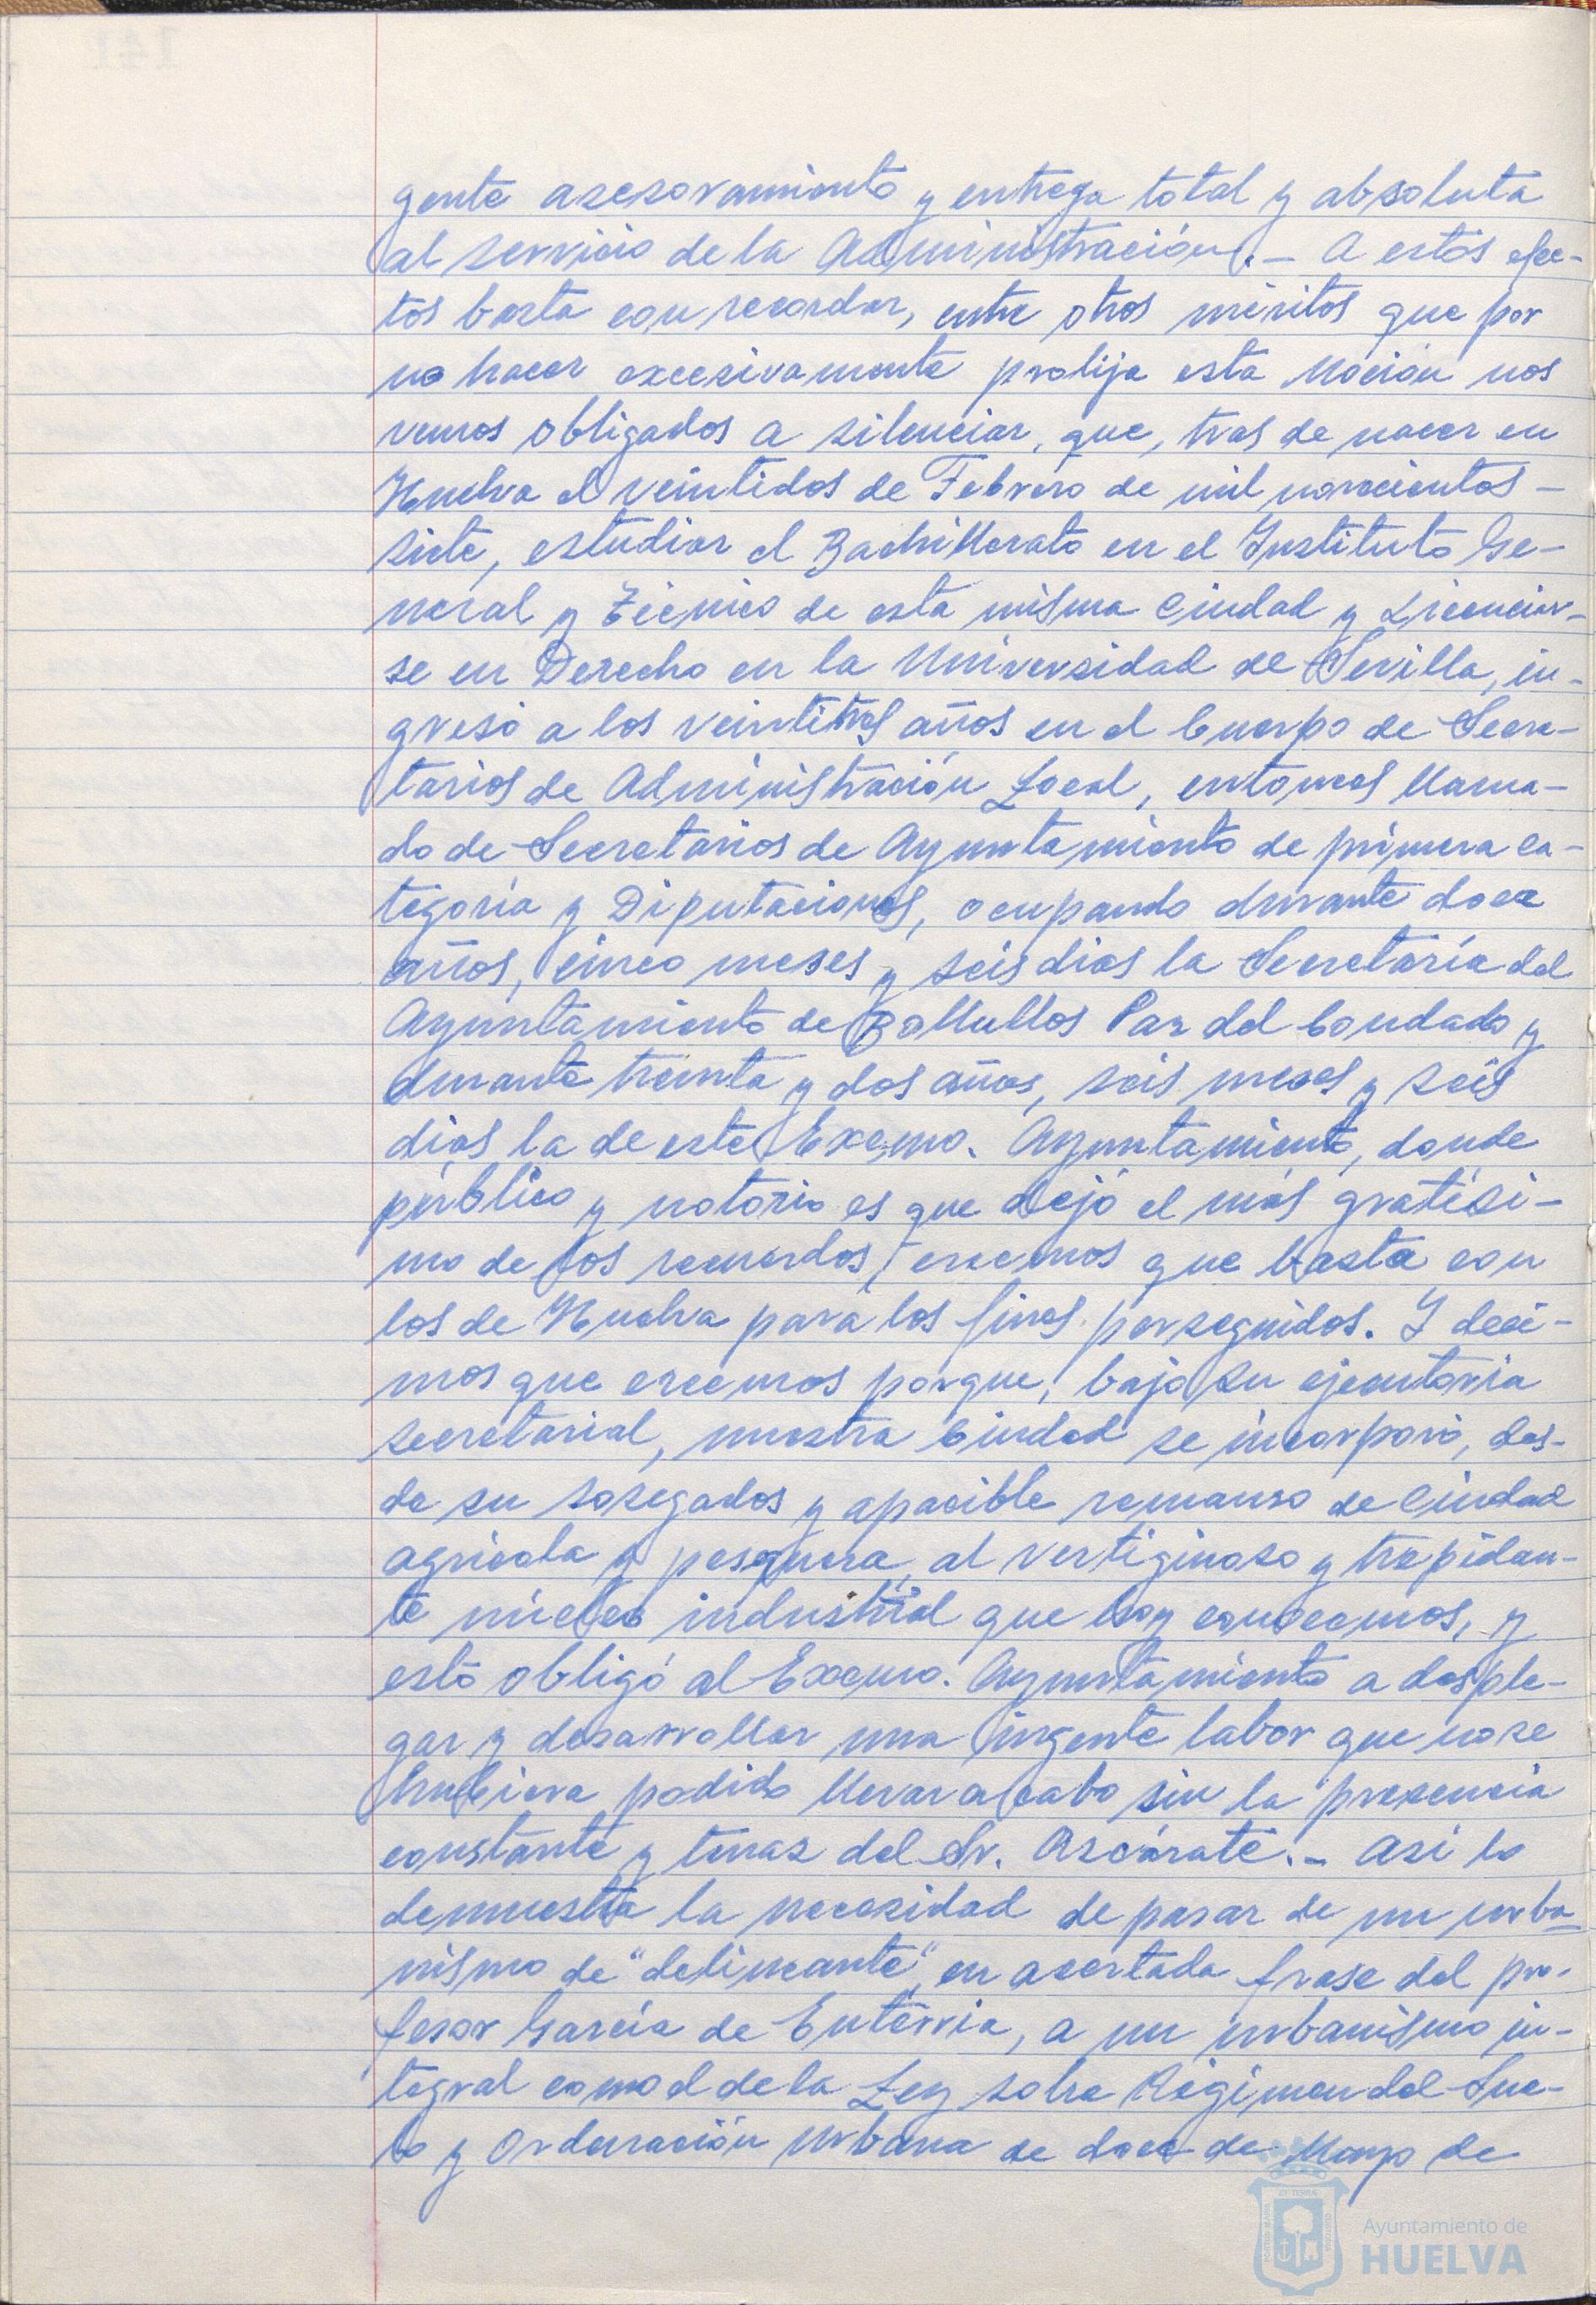 gente asesoramiento y entrega total y absoluta
al servicio de la Administración.- A estos efec-
tos basta con recordar, entre otros méritos que por
no hacer excesivamente prolija esta Moción nos
vemos obligados a silenciar, que, tras de nacer en
Huelva el veintidos de Febrero de mil novecientos -
siete, estudiar el Bachillerato en el Instituto Ge-
neral y Técnico de esta misma Ciudad y Licenciar-
se en Derecho en la Universidad de Sevilla, in-
gresó a los veintitres años en el Cuerpo de Secre-
tarios de Administración Local, entonces llama-
do de Secretarios de Ayuntamiento de primera ca-
tegoría y Diputaciones, ocupando durante doce
años, cinco meses y seis dias la Secretaría del
Ayuntamiento de Bollullos Par del Condado y
durante treinta y dos años, seis meses y seis
dias la de este Excmo. Ayuntamiento, donde
público y notorio es que dejó el más gratísi-
mo de los recuerdos, creemos que basta con
los de Huelva para los fines perseguidos. Y deci-
mos que creemos porque, bajo su ejecutoria
secretarial, nuestra Ciudad se incorporó, des-
de su sosegados y apacible remanso de Ciudad
agrícola y pesquera, al vertiginoso y trepidan-
te núcleo industrial que hoy conocemos, y
esto obligó al Excmo. Ayuntamiento a desple-
gar y desarrollar una ingente labor que no se
hubiera podido llevar a cabo sin la presencia
constante y tenaz del Sr. Azcárate.- Asi lo
demuestra la necesidad de pasar de un urba-
nismo de "delineante", en acertada frase del pro-
fesor García de Enterria, a un urbanismo in-
tegral como el de la Ley sobre Régimen del Sue-
lo y Ordenación Urbana de doce de Mayo de
Ayuntamiento de
HUELVA